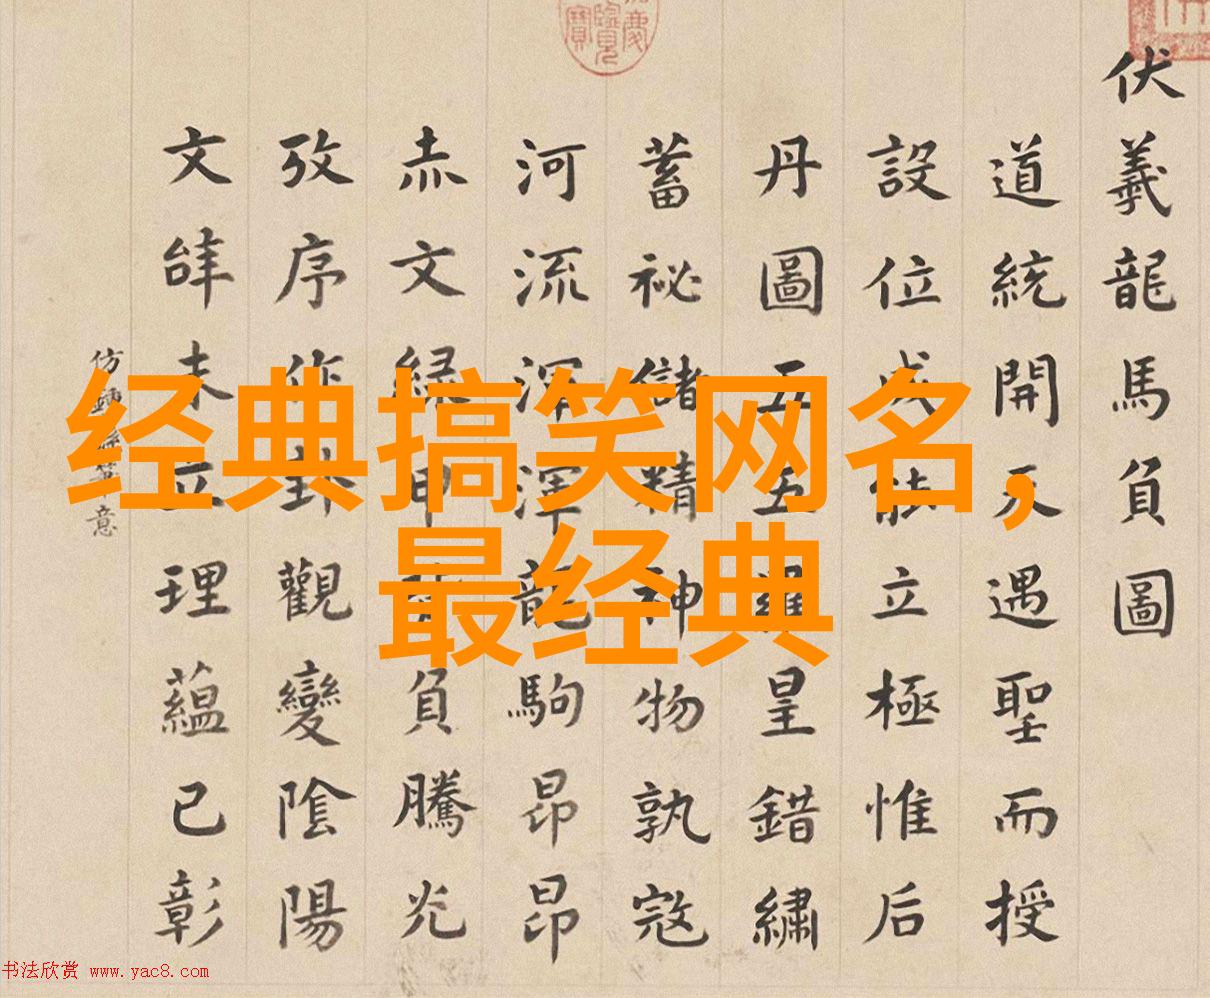 伏羲龍馬負圖
道統開天遇聖而授
設位成能立極惟后
丹圖五五羅皇錯繡
蓄祕儲精神物孰寇
河流渾渾龍駒昂昂
赤文緑甲負騰光
攷序作卦觀變陰陽
文辞未立理蘊已彰
仿意
经典搞笑网名，
最经典
书法欣赏 www.yac8.com